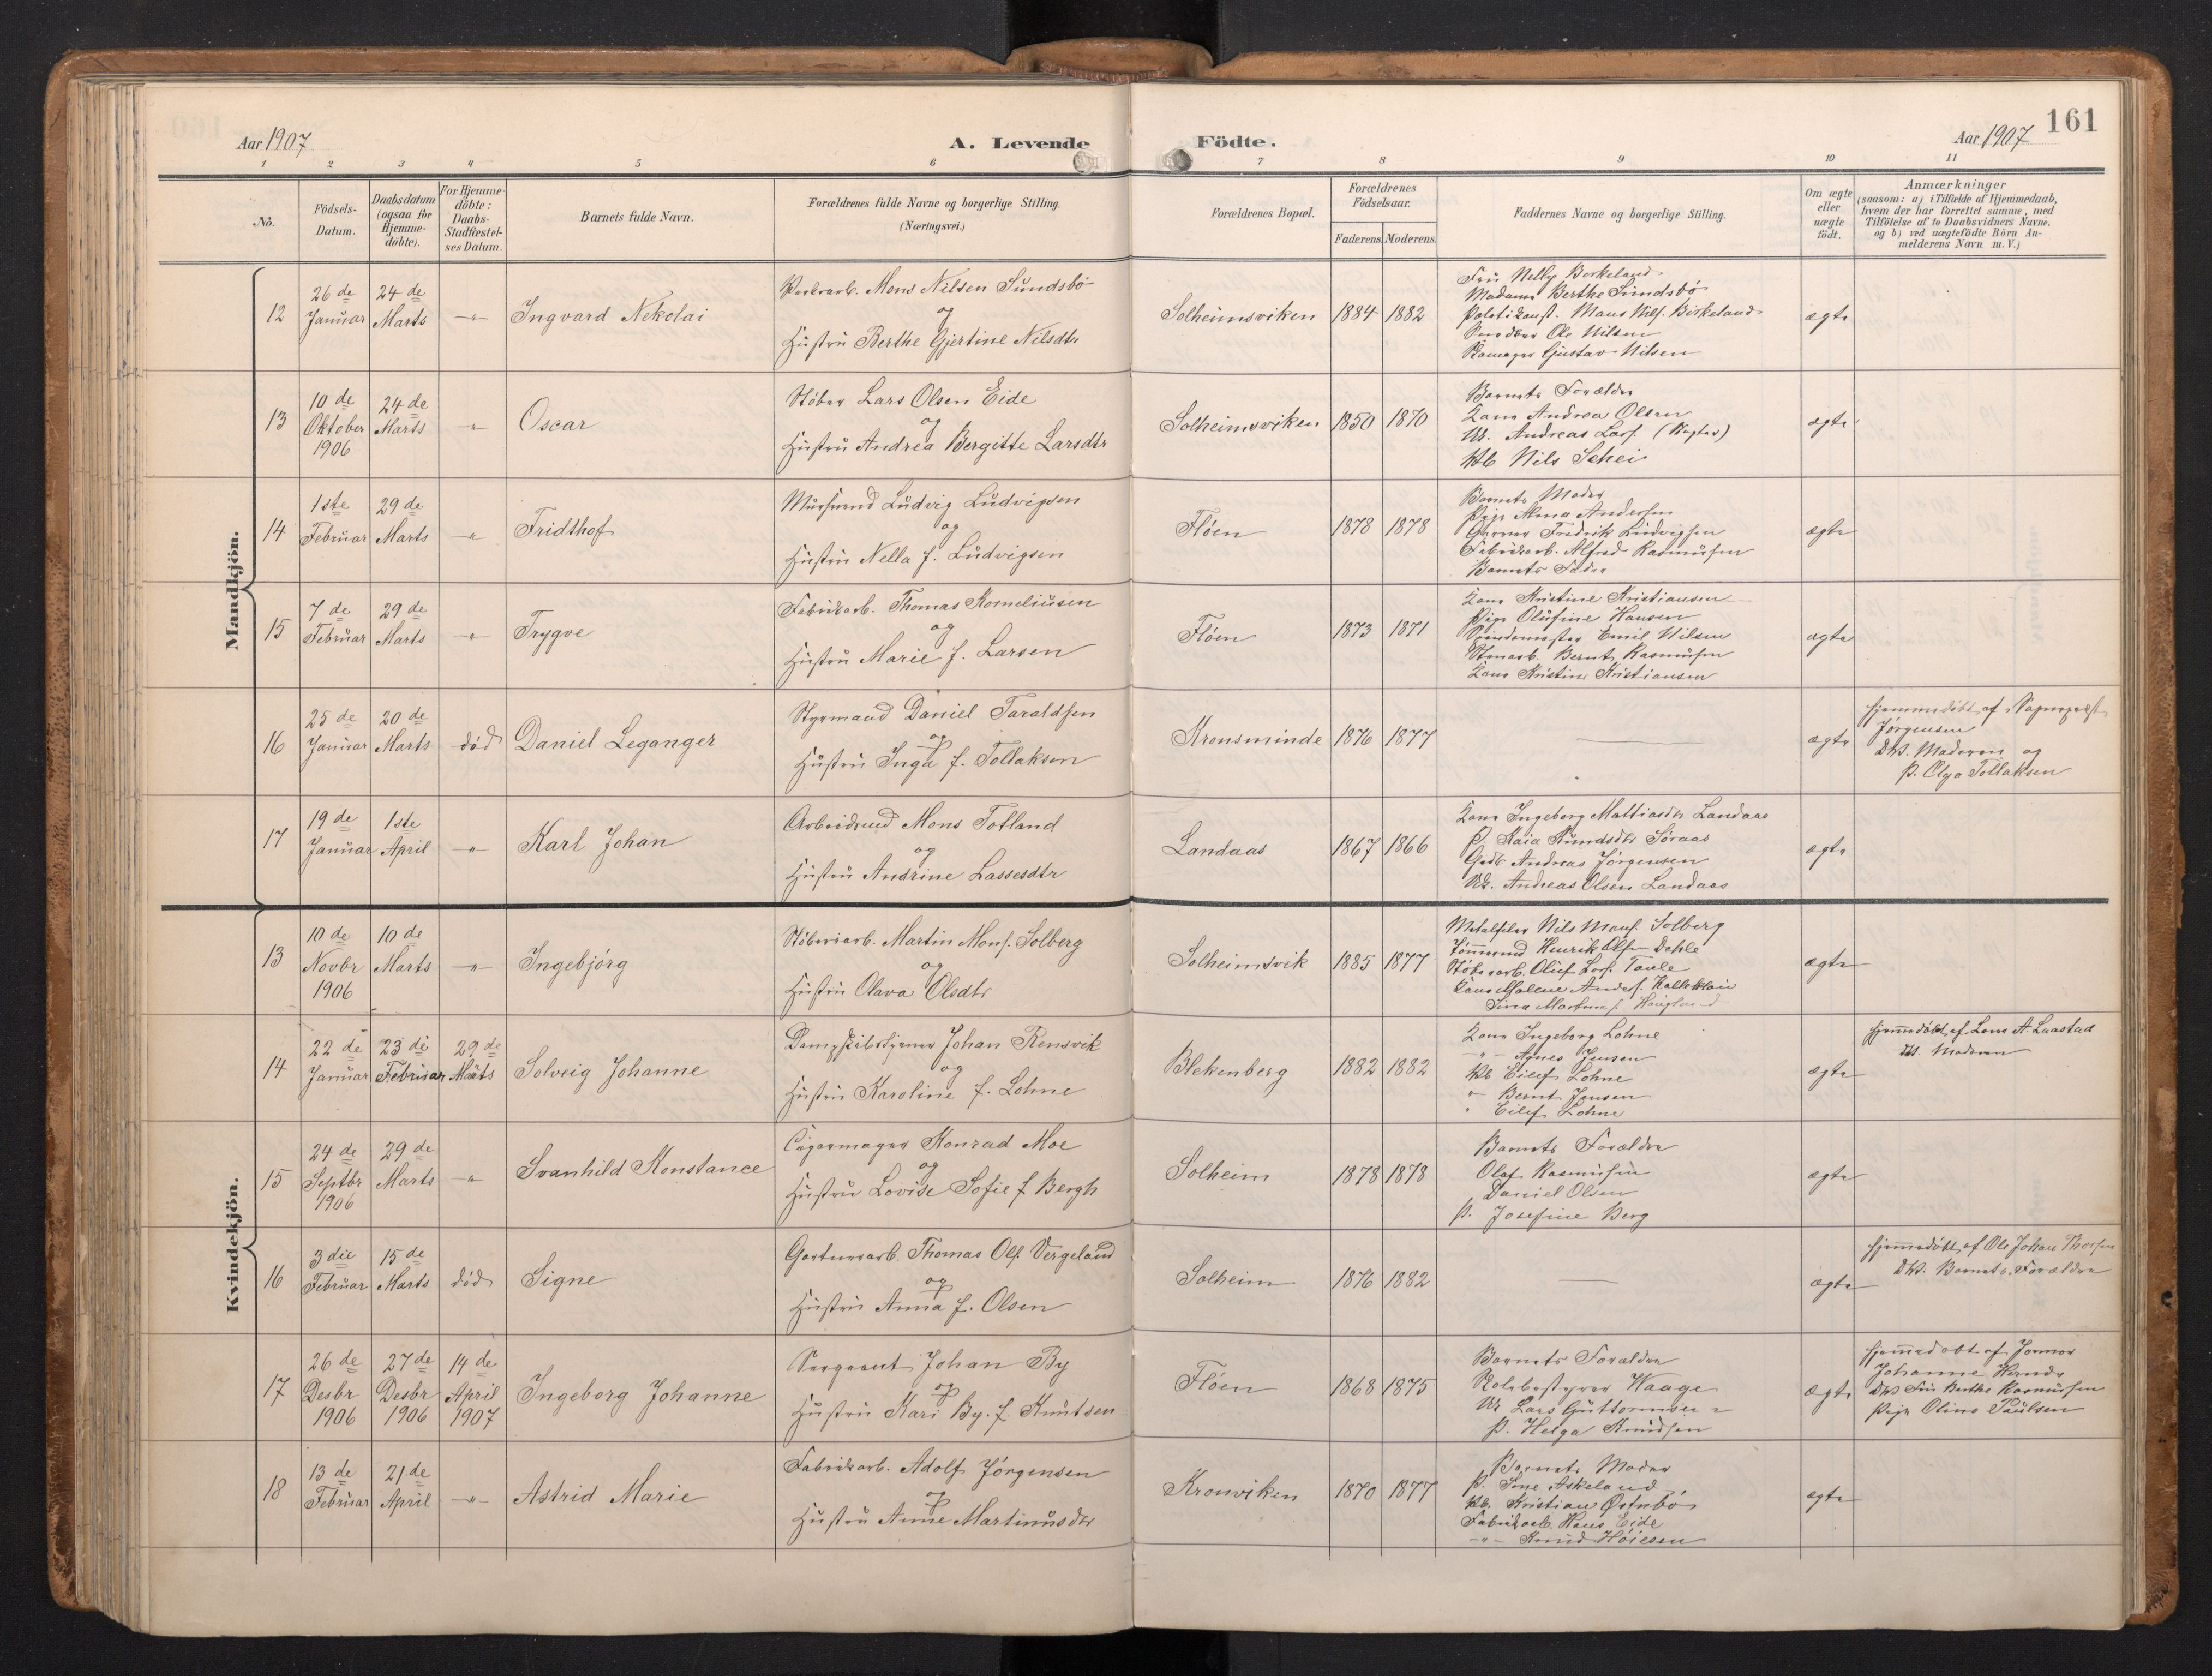 161
Aar 1907
A. Levende
Födte.
Aar 1907
1 2 3 4 5 6 7 8 9 10 11
No.
Födsels-
Datum.
Daabsdatum
(ogsaa for
Hjemme-
döbte).
For Hjemme-
döbte:
Daabs-
Stadfæstel-
ses Datum.
Barnets fulde Navn.
Forældrenes fulde Navne og borgerlige Stilling.
(Næringsvei.)
Forældrenes Bopæl.
Forældrenes
Födselsaar.
Faderens. Moderens.
Faddernes Navne og borgerlige Stilling.
Om ægte
eller
uægte
födt.
Anmærkninger
(saasom: a) i Tilfælde af Hjemmedaab,
hvem der har forrettet samme, med
Tilföielse af to Daabsvidners Navne.
og b) ved uægtefödte Börn An-
melderens Navn m. V.)
Mandkjön.
12
26de
Januar
24de
Marts
-"-
Ingvard Nikolai
Mons Nilsen Sundsbö
og
Hustru Berthe Gjertine Nilsdtr
Solheimsviken
1884 1882
Fru Nelly Berkeland
Madame Berthe Sundsbö
Politikonst. Mons Nils. Birkeland
Ole Nilsen
Gustav Nilsen
ægte
13
10de
Oktober
1906
24de
Marts
-"-
Oscar
Stöber Lars Olsen Eide
og
Hustru Andrea Bergitte Larsdtr
Solheimsviken
1850 1870
Barnets Forældre
Kone Andrea Olsen
Uk. Andreas Lars. (Vegter)
Ub Nils Schei
ægte
14
1ste
Februar
29de
Marts
-"-
Fridthof
Mursvend Ludvig Ludvigsen
og
Hustru Nella f. Ludvigsen
Flöen
1878 1878
Barnets Moder
Pige Anna Andersen
Fredrik Ludvigsen
Fabrikarb. Alfred Rasmusen
Barnets Fader
ægte
15
7de
Februar
29de
Marts
-"-
Trygve
Fabrikarb. Thomas Korneliusen
og
Hustru Marie f. Larsen
Flöen
1873 1871
Kone Kristine Kristiansen
Pige Olufine Hansen
Spindemester Emil Nilsen
Bernt Rasmusen
Kone Kristine Kristiansen
ægte
16
25de
Januar
20de
Marts
död
Daniel Leganger
Styrmand Daniel Taraldsen
og
Hustru Inga f. Tollaksen
Kronsminde
1876 1877
ægte
Hjemmedöbt af Sogneprest
Jørgensen
Dbv. Moderen og
P. Olga Tollaksen
17
19de
Januar
1ste
April
-"-
Karl Johan
Arbeidsmd Mons Totland
og
Hustru Andrine Lassesdtr
Landaas
1867 1866
Kone Ingeborg Mattiasdtr Landaas
P. Kaia Knudsdtr Søraas
Gadb Andreas Jørgensen
Uk. Andreas Olsen Landaas
ægte
Kvindekjön.
13
10de
Novbr
1906
10de
Marts
-"-
Ingebjörg
Stöberiarb. Martin Mons. Solberg
og
Hustru Olava Olsdtr
Solheimsvik
1885 1877
Metalfiler Nils Mons. Solberg
Tömmermd Henrik Olsen Dahle
Stöberarb. Oluf Lars. Taule
Kone Malene Anders. Kalleklev
ægte
14
22de
Januar
23de
Februar
29de
Marts
Solveig Johanne
Dampskibstjener Johan Rensvik
og
Hustru Karoline f. Lohne
Blekenberg
1882 1882
Kone Ingeborg Lohne
-"- Agnes Jensen
Ub Eilef Lohne
" Bernt Jensen
" Eilef Lohne
ægte
Hjemmedöbt af Lars A. Laastad
Dbv. Moderen
15
24de
Septbr
1906
29de
Marts
-"-
Svanhild Konstance
Cigarmager Konrad Moe
og
Hustru Lovise Sofie f Bergh
Solheim
1878 1878
Barnets Forældre
Olaf Rasmusen
Daniel Olsen
P. Josefine Berg
ægte
16
3die
Februar
15de
Marts
död
Signe
Gartnerarb. Thomas Ols. Vergeland
og
Hustru Anna f. Olsen
Solheim
1876 1882
ægte
Hjemmedöbt af Ole Johan Thorsen
Dbv. Barnets Forældre
17
26de
Desbr
1906
27de
Desbr
1906
14de
April
1907
Ingeborg Johanne
Sergeant Johan By
og
Hustru Kari By. f. Knutsen
Flöen
1868 1875
Barnets Forældre
Skolebestyrer Waage
Uk Lars Guttormsen
P. Helga Knudsen
ægte
Hjemmedöbt af Jormor
Johanne
Dbv Fru Berthe Rasmusen
Pige Oline Paulsen
18
13de
Februar
21de
April
-"-
Astrid Marie
Fabrikarb. Adolf Jørgensen
og
Hustru Anne Martinusdtr
Kronviken
1870 1877
Barnets Moder
P. Sine Askeland
Ub. Kristian Østnbö
Fabrikarb. Hans Eide
-"- Knud Høiesen
ægte